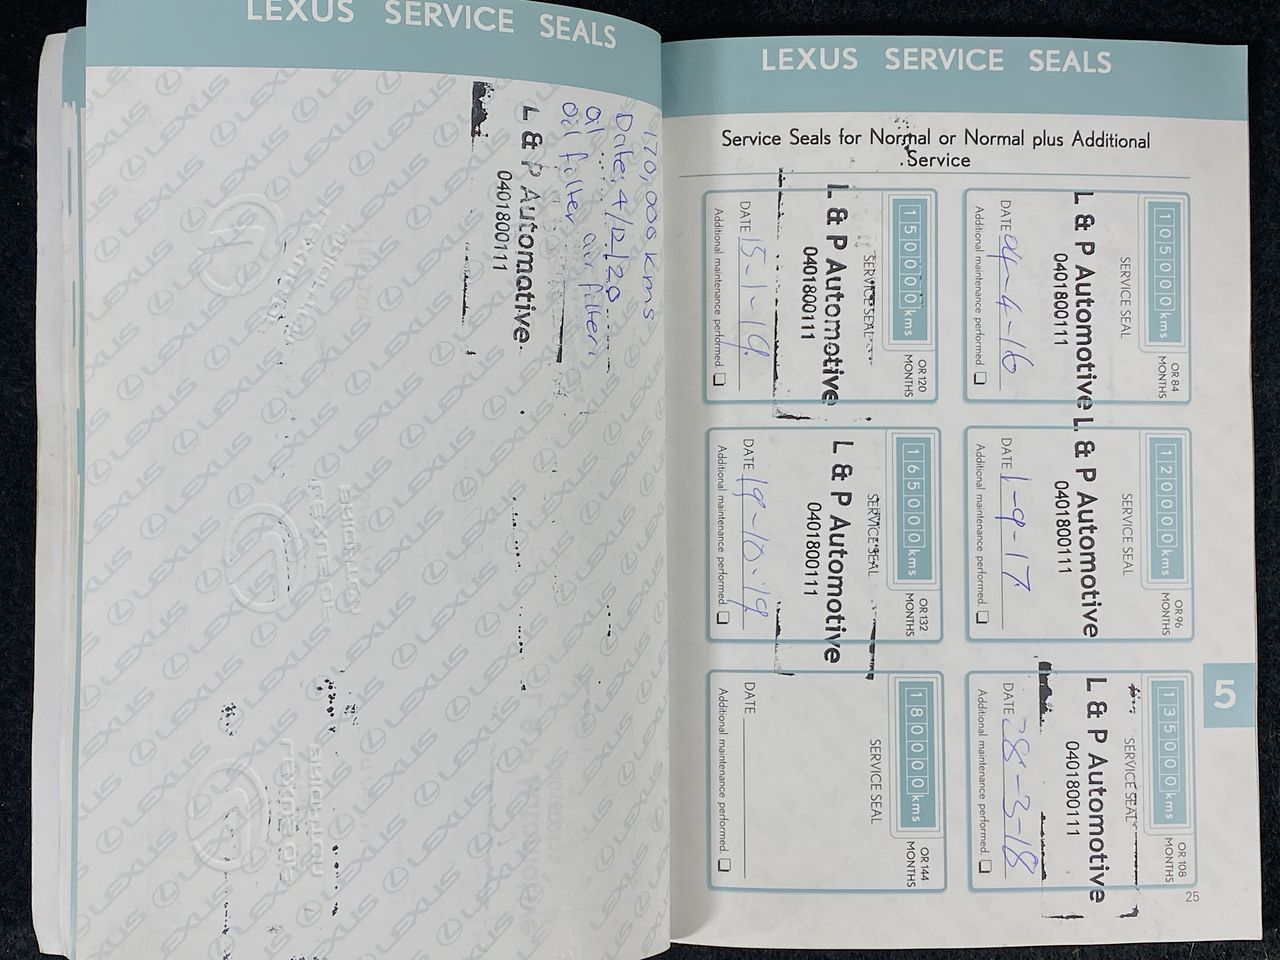 LEXUS SERVICE SEALS
170,000 kms
Date: 4/12/20
oil air filter
oil filter
L & P Automotive
0401800111
LEXUS SERVICE SEALS
Service Seals for Normal or Normal plus Additional
Service
105000 kms
OR 84
MONTHS
SERVICE SEAL
L & P Automotive
0401800111
DATE
Additional maintenance performed.
120000 kms
OR 96
MONTHS
SERVICE SEAL
L & P Automotive
0401800111
DATE 1-9-17
Additional maintenance performed.
135000 kms
OR 108
MONTHS
SERVICE SEAL
L & P Automotive
0401800111
DATE 28-3-18
Additional maintenance performed.
150000 kms
OR 120
MONTHS
SERVICE SEAL
L & P Automotive
0401800111
DATE 15-1-19
Additional maintenance performed.
165000 kms
OR 132
MONTHS
SERVICE SEAL
L & P Automotive
0401800111
DATE 19-10-19
Additional maintenance performed.
180000 kms
OR 144
MONTHS
SERVICE SEAL
DATE
Additional maintenance performed.
5
25